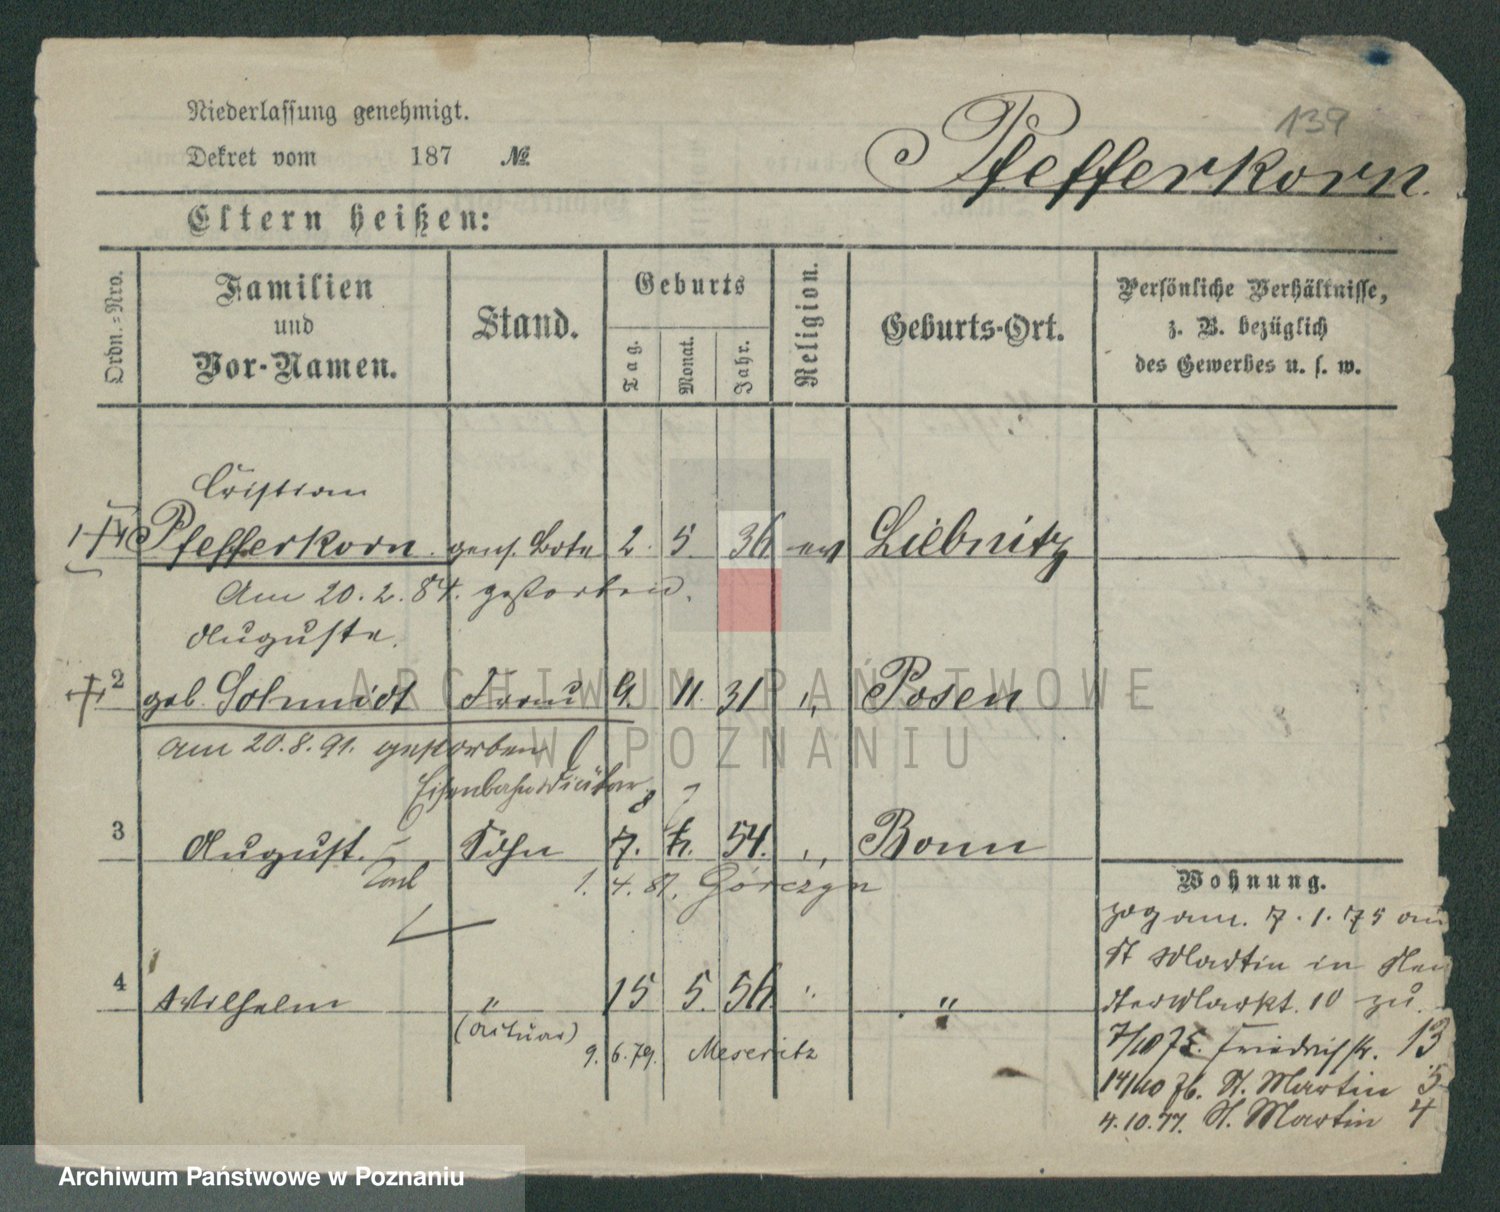 139
Niederlassung genehmigt.
Dekret vom 187 №
Pfefferkorn.
Eltern heißen:
Ordn.=Nro.
Familien
und
Vor-Namen.
Stand.
Geburts
Tag.
Monat.
Jahr.
Religion.
Geburts-Ort.
Persönliche Verhältnisse,
z. B. bezüglich
des Gewerbes u. s. w.
Cristian
1 Pfefferkorn. Bote 2. 5. 36 ev Liebnitz
Am 20.2.84. gestorben.
Auguste.
2 geb. Schmidt Frau 9. 11. 31 " Posen
am 20.8.91. gestorben
Eisenbahn
8
3 August. Sohn 7. 54. " Bonn
1. 4. 81. Górczyn
4 Wilhelm " 15 5. 56. " "
(Actuar)
9. 6. 79. Meseritz
Wohnung.
zog am. 7. 1. 75 am
St Martin in
Markt. 10 zu.
7/10 75. Friedrichstr. 13
14/10 76. St. Martin 5
4. 10. 77. St. Martin 4
ARCHIWUM PAŃSTWOWE
W POZNANIU
Archiwum Państwowe w Poznaniu